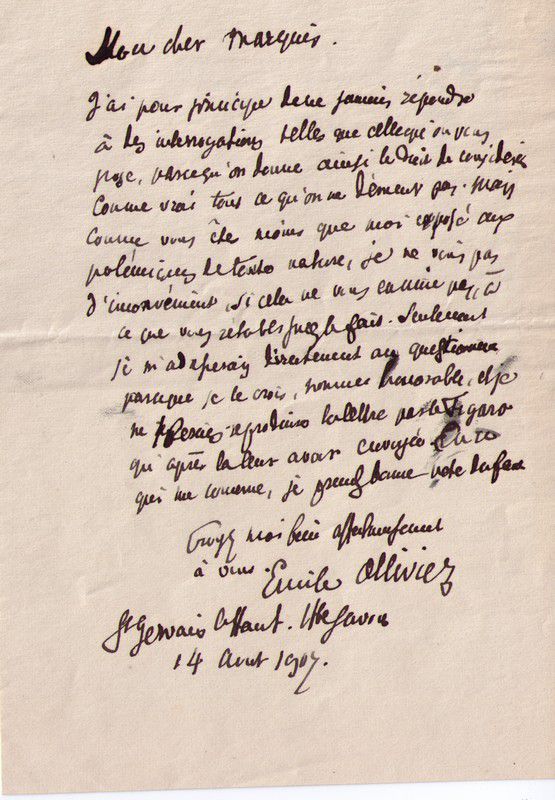 Mon cher Marquis.
J'ai pour principe de ne jamais répondre
à des interrogations telles que celle qu'on vous
pose, parce qu'on donne ainsi le droit de considérer
comme vrai tout ce qu'on ne dément pas. Mais
comme vous êtes moins que moi exposé aux
polémiques de toute nature, je ne vois pas
d'inconvénient, si cela ne vous ennuie pas, à
ce que vous rétablissiez le fait. Seulement
je m'adresserais directement au questionneur
parce que je le crois, homme honorable, et je
ne ferais reproduire la lettre par le Figaro
qu'après la leur avoir envoyée. En ce
qui me concerne, je prends bonne note
Croyez moi bien affectueusement
à vous.
Emile Ollivier
St Gervais le Haut. Hte Savoie
14 Aout 1907.